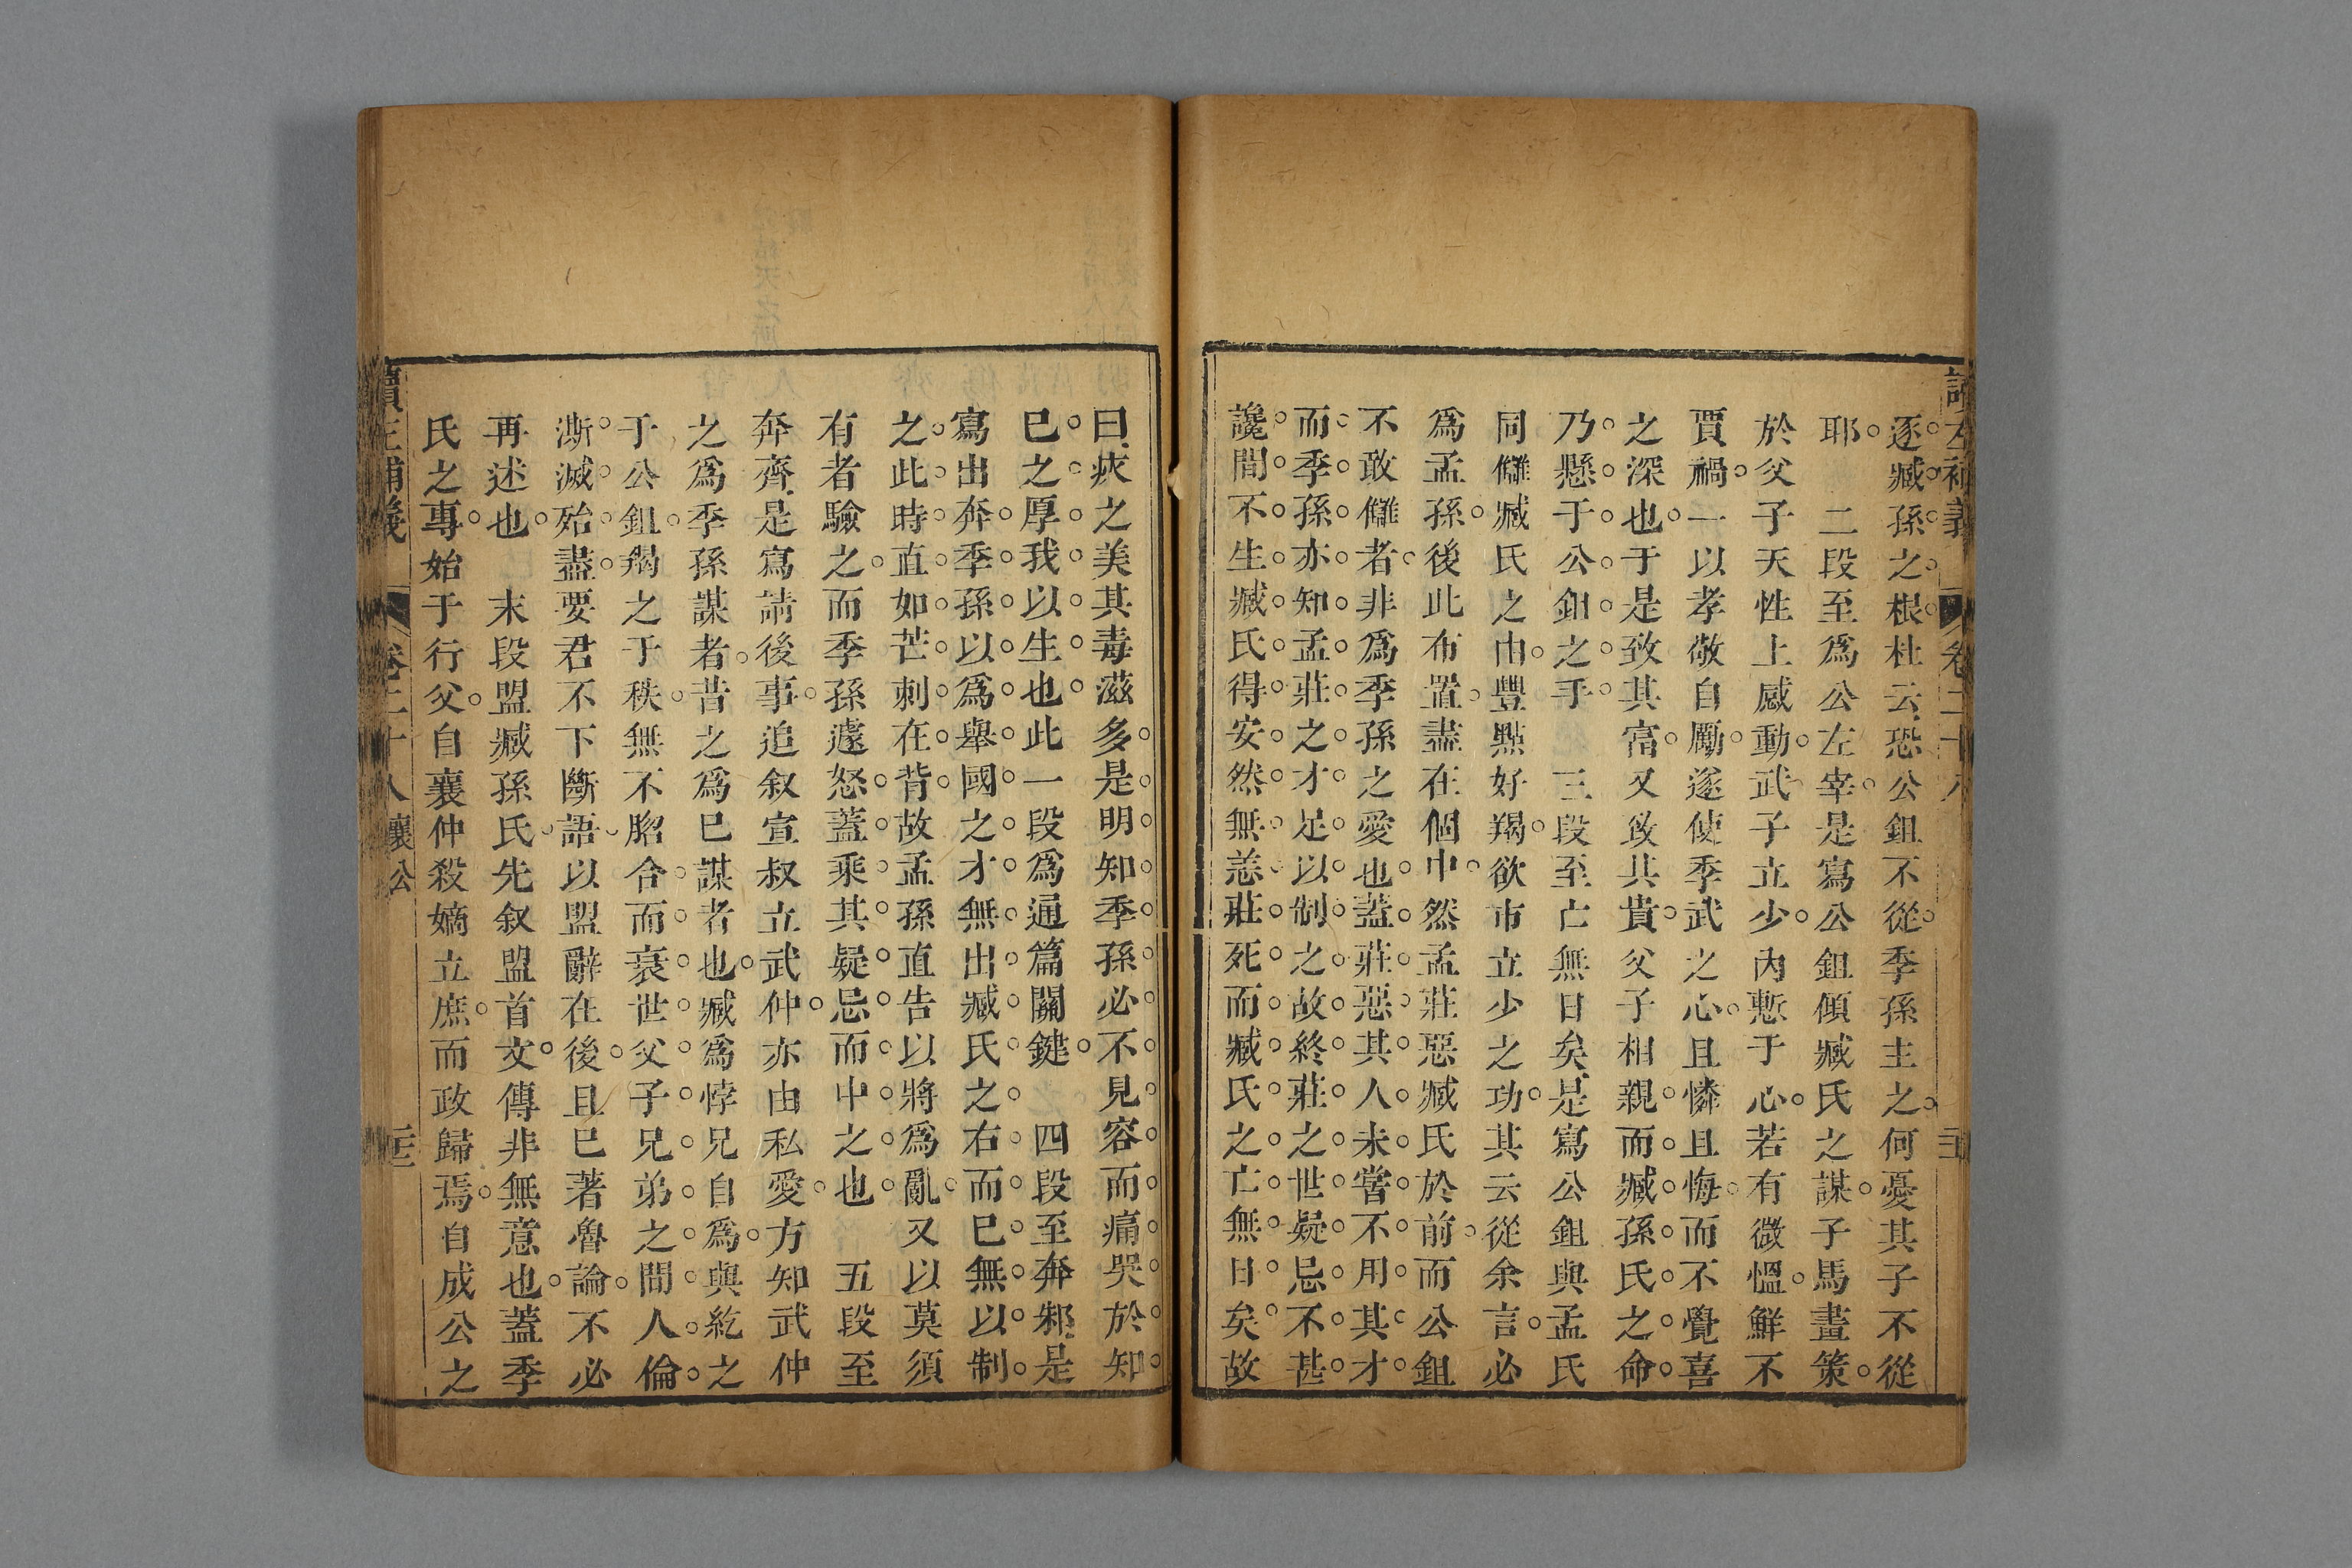 逐臧孫之根杜云恐公鉏不從季孫主之何憂其子不從
耶　二段至爲公左宰是寫公鉏傾臧氏之謀子馬畫策
於父子天性上感動武子立少內慙于心若有微慍鮮不
賈禍一以孝敬自勵遂使季武之心且憐且悔而不覺喜
之深也于是致其富又致其貴父子相親而臧孫氏之命
乃懸于公鉏之手　三段至亡無日矣是寫公鉏與孟氏
同讎臧氏之由豐點好羯欲市立少之功其云從余言必
爲孟孫後此布置盡在個中然孟莊惡臧氏於前而公鉏
不敢讎者非爲季孫之愛也蓋莊惡其人未嘗不用其才
而季孫亦知孟莊之才足以制之故終莊之世疑忌不甚
讒間不生臧氏得安然無恙莊死而臧氏之亡無日矣故
曰疾之美其毒滋多是明知季孫必不見容而痛哭於知
已之厚我以生也此一段爲通篇關鍵　四段至奔邾是
寫出奔季孫以爲舉國之才無出臧氏之右而已無以制
之此時直如芒刺在背故孟孫直告以將爲亂又以莫須
有者驗之而季孫遽怒蓋乘其疑忌而中之也　五段至
奔齊是寫請後事追叙宣叔立武仲亦由私愛方知武仲
之爲季孫謀者昔之爲已謀者也臧爲悖兄自爲與紇之
于公鉏羯之于秩無不脗合而衰世父子兄弟之間人倫
澌滅殆盡要君不下斷語以盟辭在後且已著魯論不必
再述也　末段盟臧孫氏先叙盟首文傳非無意也蓋季
氏之專始于行父自襄仲殺嫡立庶而政歸焉自成公之
讀左補義　卷二十八　襄公